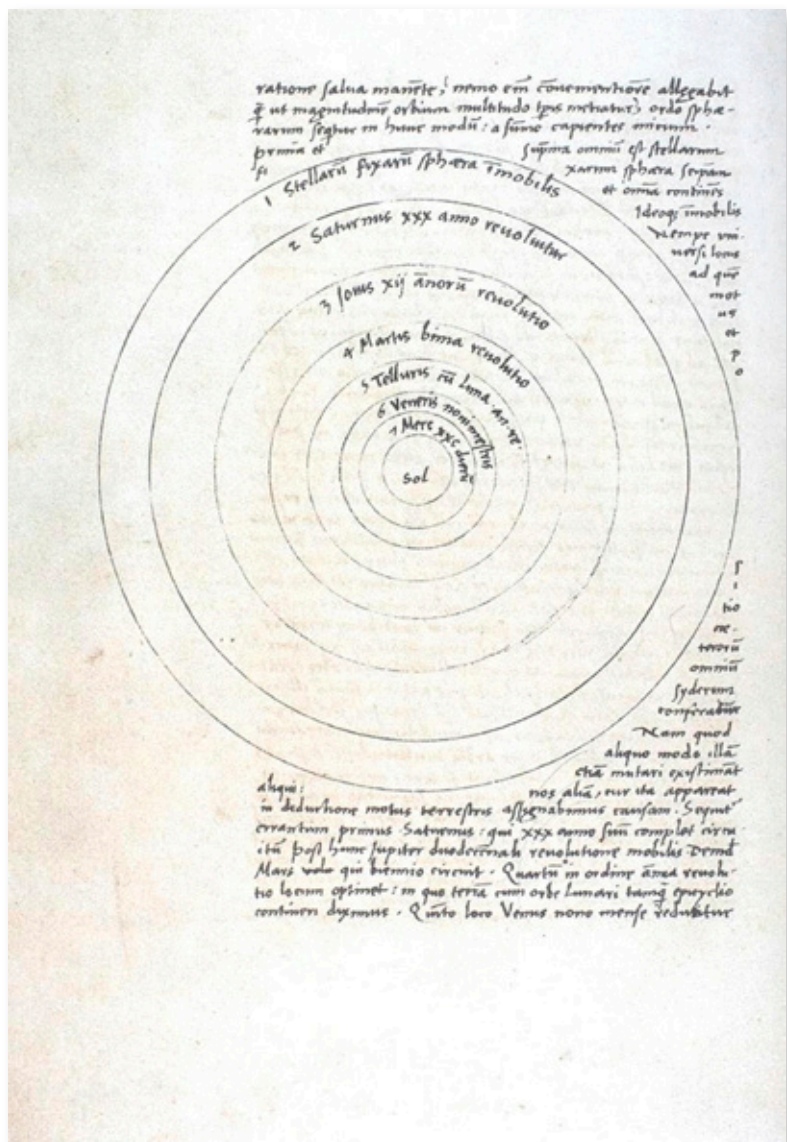 ratione salua manēte, nemo em̄ cōuenientiorē allegabit
q̄ ut magnitudinē orbium multitudo tp̄is metiatur, ordo sphæ-
rarum seq̄tur in hunc modū: a sūmo capientes initium.
prima et suprema omniū est stellarum
fi xarum sphæra seipam
et omīa continēs
Ideoq; īmobilis
Nempe vni-
uersi locus
ad quē
mot
us
et
p
o
1 Stellarū fixarū sphæra īmobilis
2 Saturnus xxx anno reuoluitur
3 Iouis xij ānorū reuolutio
4 Martis bima reuolutio
5 Telluris cū Luna · an · re ·
6 Veneris nonimestris
7 Merc xxc dierū
Sol
ſ
i
tio
ce-
terorū
omniū
syderum
conferatur
Nam quod
aliquo modo illā
etiā mutari existimāt
aliqui: nos aliā, cur ita appareat
in deductione motus terrestris assignabimus causam. Sequit̄
errantium primus Saturnus: qui xxx anno suū complet circu
itū post hunc Iupiter duodecēnali reuolutione mobilis Deinđ
Mars qui biennio circuit. Quartū in ordine ānua reuolu-
tio locum optinet: in quo terrā cum orbe Lunari tamq̄ epicyclio
contineri diximus. Quinto loco Venus nono mense reducitur